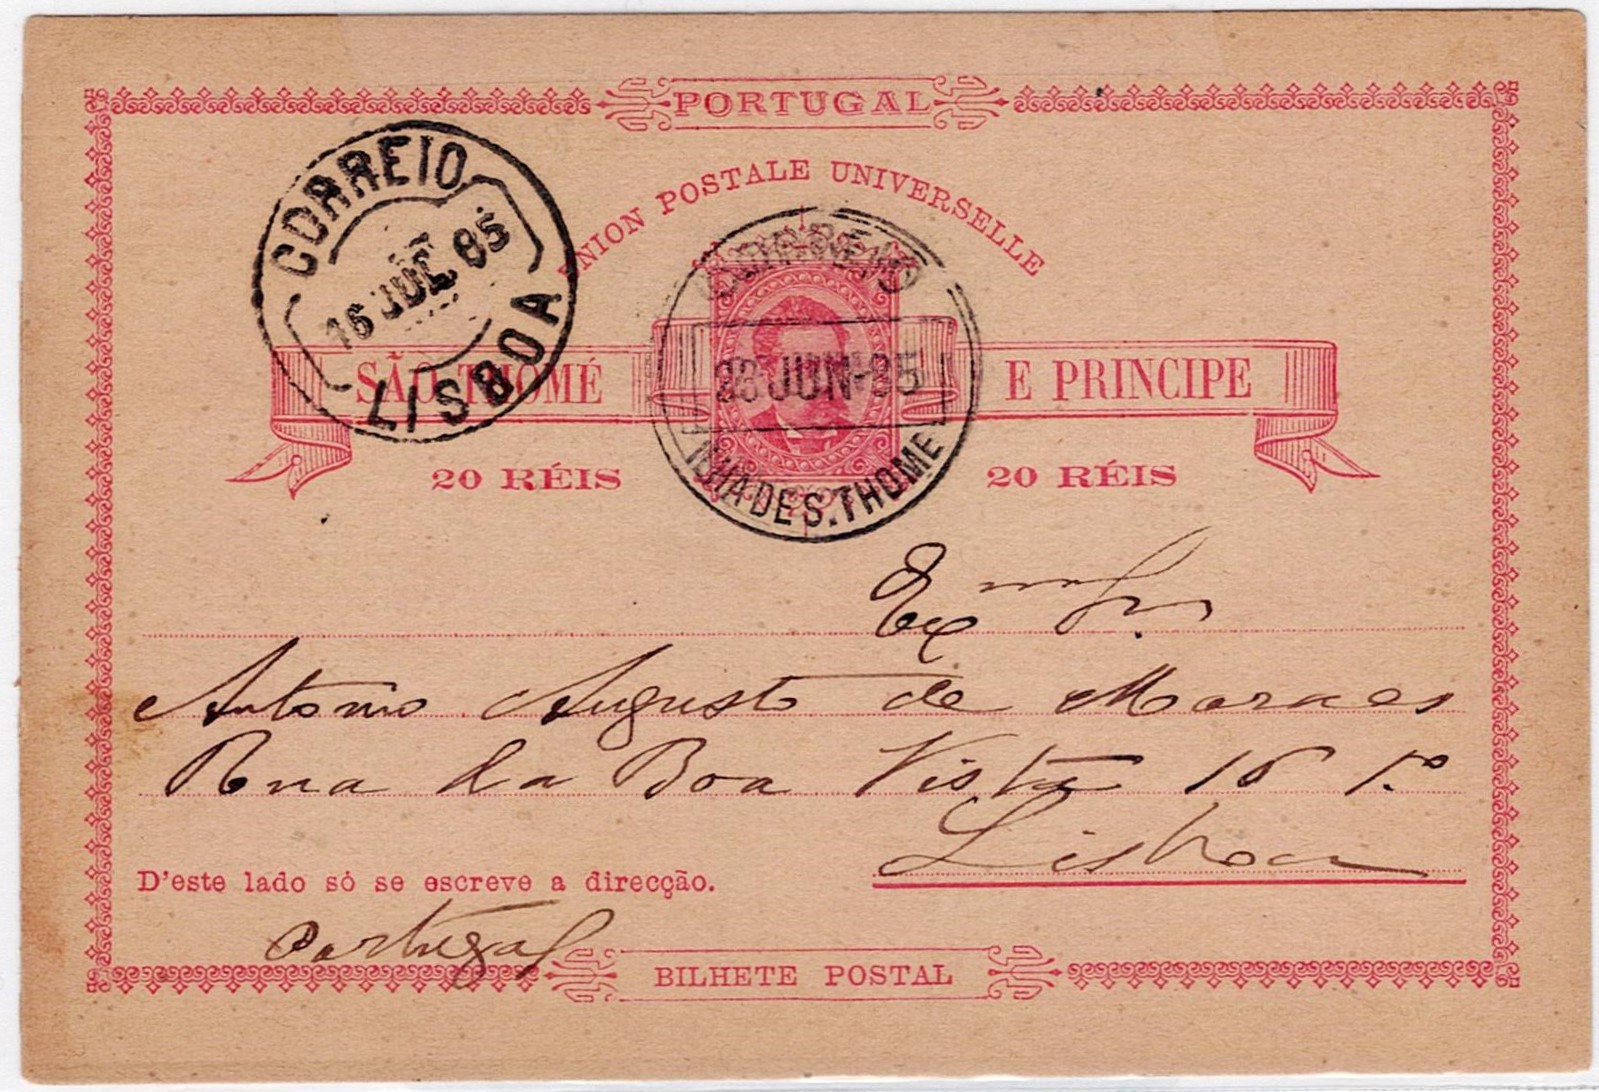 PORTUGAL
UNION POSTALE UNIVERSELLE
CORREIO
16 JUL 85
LISBOA
CORREIO
JUN 85
ILHA DE S. THOME
SÃO THOMÉ E PRINCIPE
20 RÉIS 20 RÉIS
Exmo Sr.
Antonio Augusto de Moraes
Rua da Boa Vista 16 1.º
Lisboa
D'este lado só se escreve a direcção.
Portugal
BILHETE POSTAL